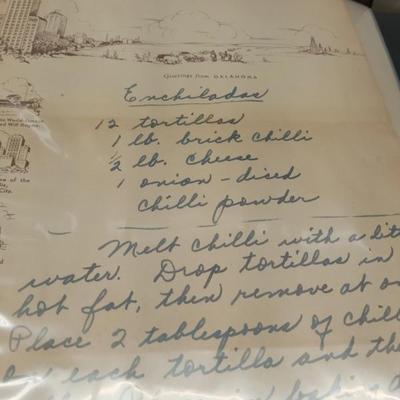 Greetings from OKLAHOMA
Enchiladas
12 tortillas
1 lb. brick chilli
1/2 lb. cheese
1 onion - diced
chilli powder
Melt chilli with a lit
water. Drop tortillas in
hot fat, then remove at on
Place 2 tablespoons of chill
on each tortilla and the